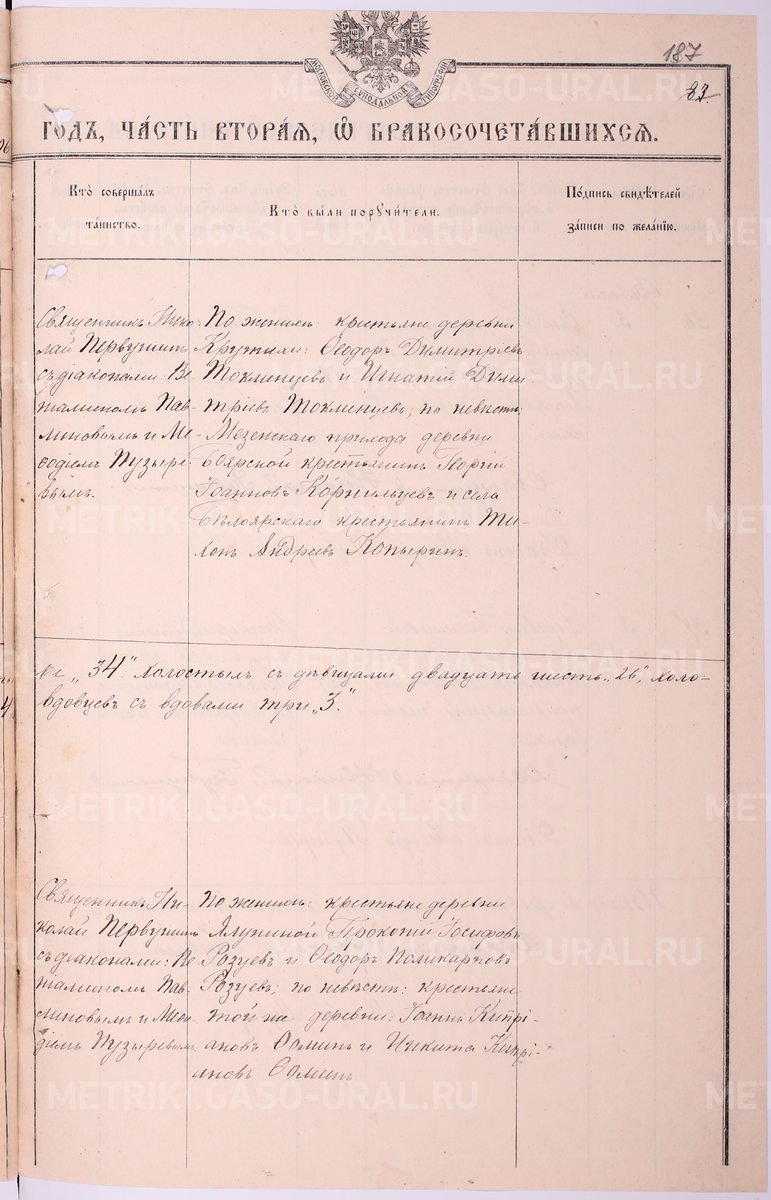 МОСКОВСКОЙ СѴНОДАЛЬНОЙ ТИПОГРАФІИ
187
83.
ГОДЪ, ЧА́СТЬ ВТОРА́Я, Ѡ БРАКОСОЧЕТА́ВШИХСЯ.
Кто̀ соверша́лъ
та́инство.
Кто̀ бы́ли порꙋчи́тели.
По́дпись свидѣ́телей
за́писи по жела́нїю.
Священникъ Нико-
лай Первушинъ
съ діаконами: Ве
ніаминомъ Пав-
линовымъ и Ме-
ѳодіемъ Пузыре-
вымъ.
По женихѣ: крестьяне деревни
Крутыхи: Ѳеодоръ Димитріевъ
Токменцевъ и Игнатій Дими
тріевъ Токменцевъ; по невѣстѣ:
Мезенскаго прихода деревни
Боярской крестьянинъ Георгій
Іоанновъ Корнильцевъ и села
Бѣлоярскаго крестьянинъ Ти-
хонъ Андреевъ Копыринъ.
"34" холостыхъ съ дѣвицами двадцать шесть "26", холо-
вдовцевъ съ вдовами три "3".
Священникъ Ни-
колай Первушинъ
съ діаконами: Ве
ніаминомъ Пав-
линовымъ и Меѳо-
діемъ Пузыревымъ
По женихѣ: крестьяне деревни
Ялуниной Прокопій Іосифовъ
Розуевъ и Ѳеодоръ Поликарповъ
Розуевъ; по невѣстѣ: крестьяне
той же деревни: Іоаннъ Кипрі-
ановъ Ѳоминъ и Никита Кипрі-
ановъ Ѳоминъ.
METRIKI.GASO-URAL.RU